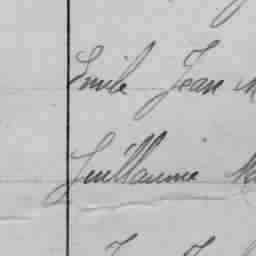 Emile Jean
Guillaume